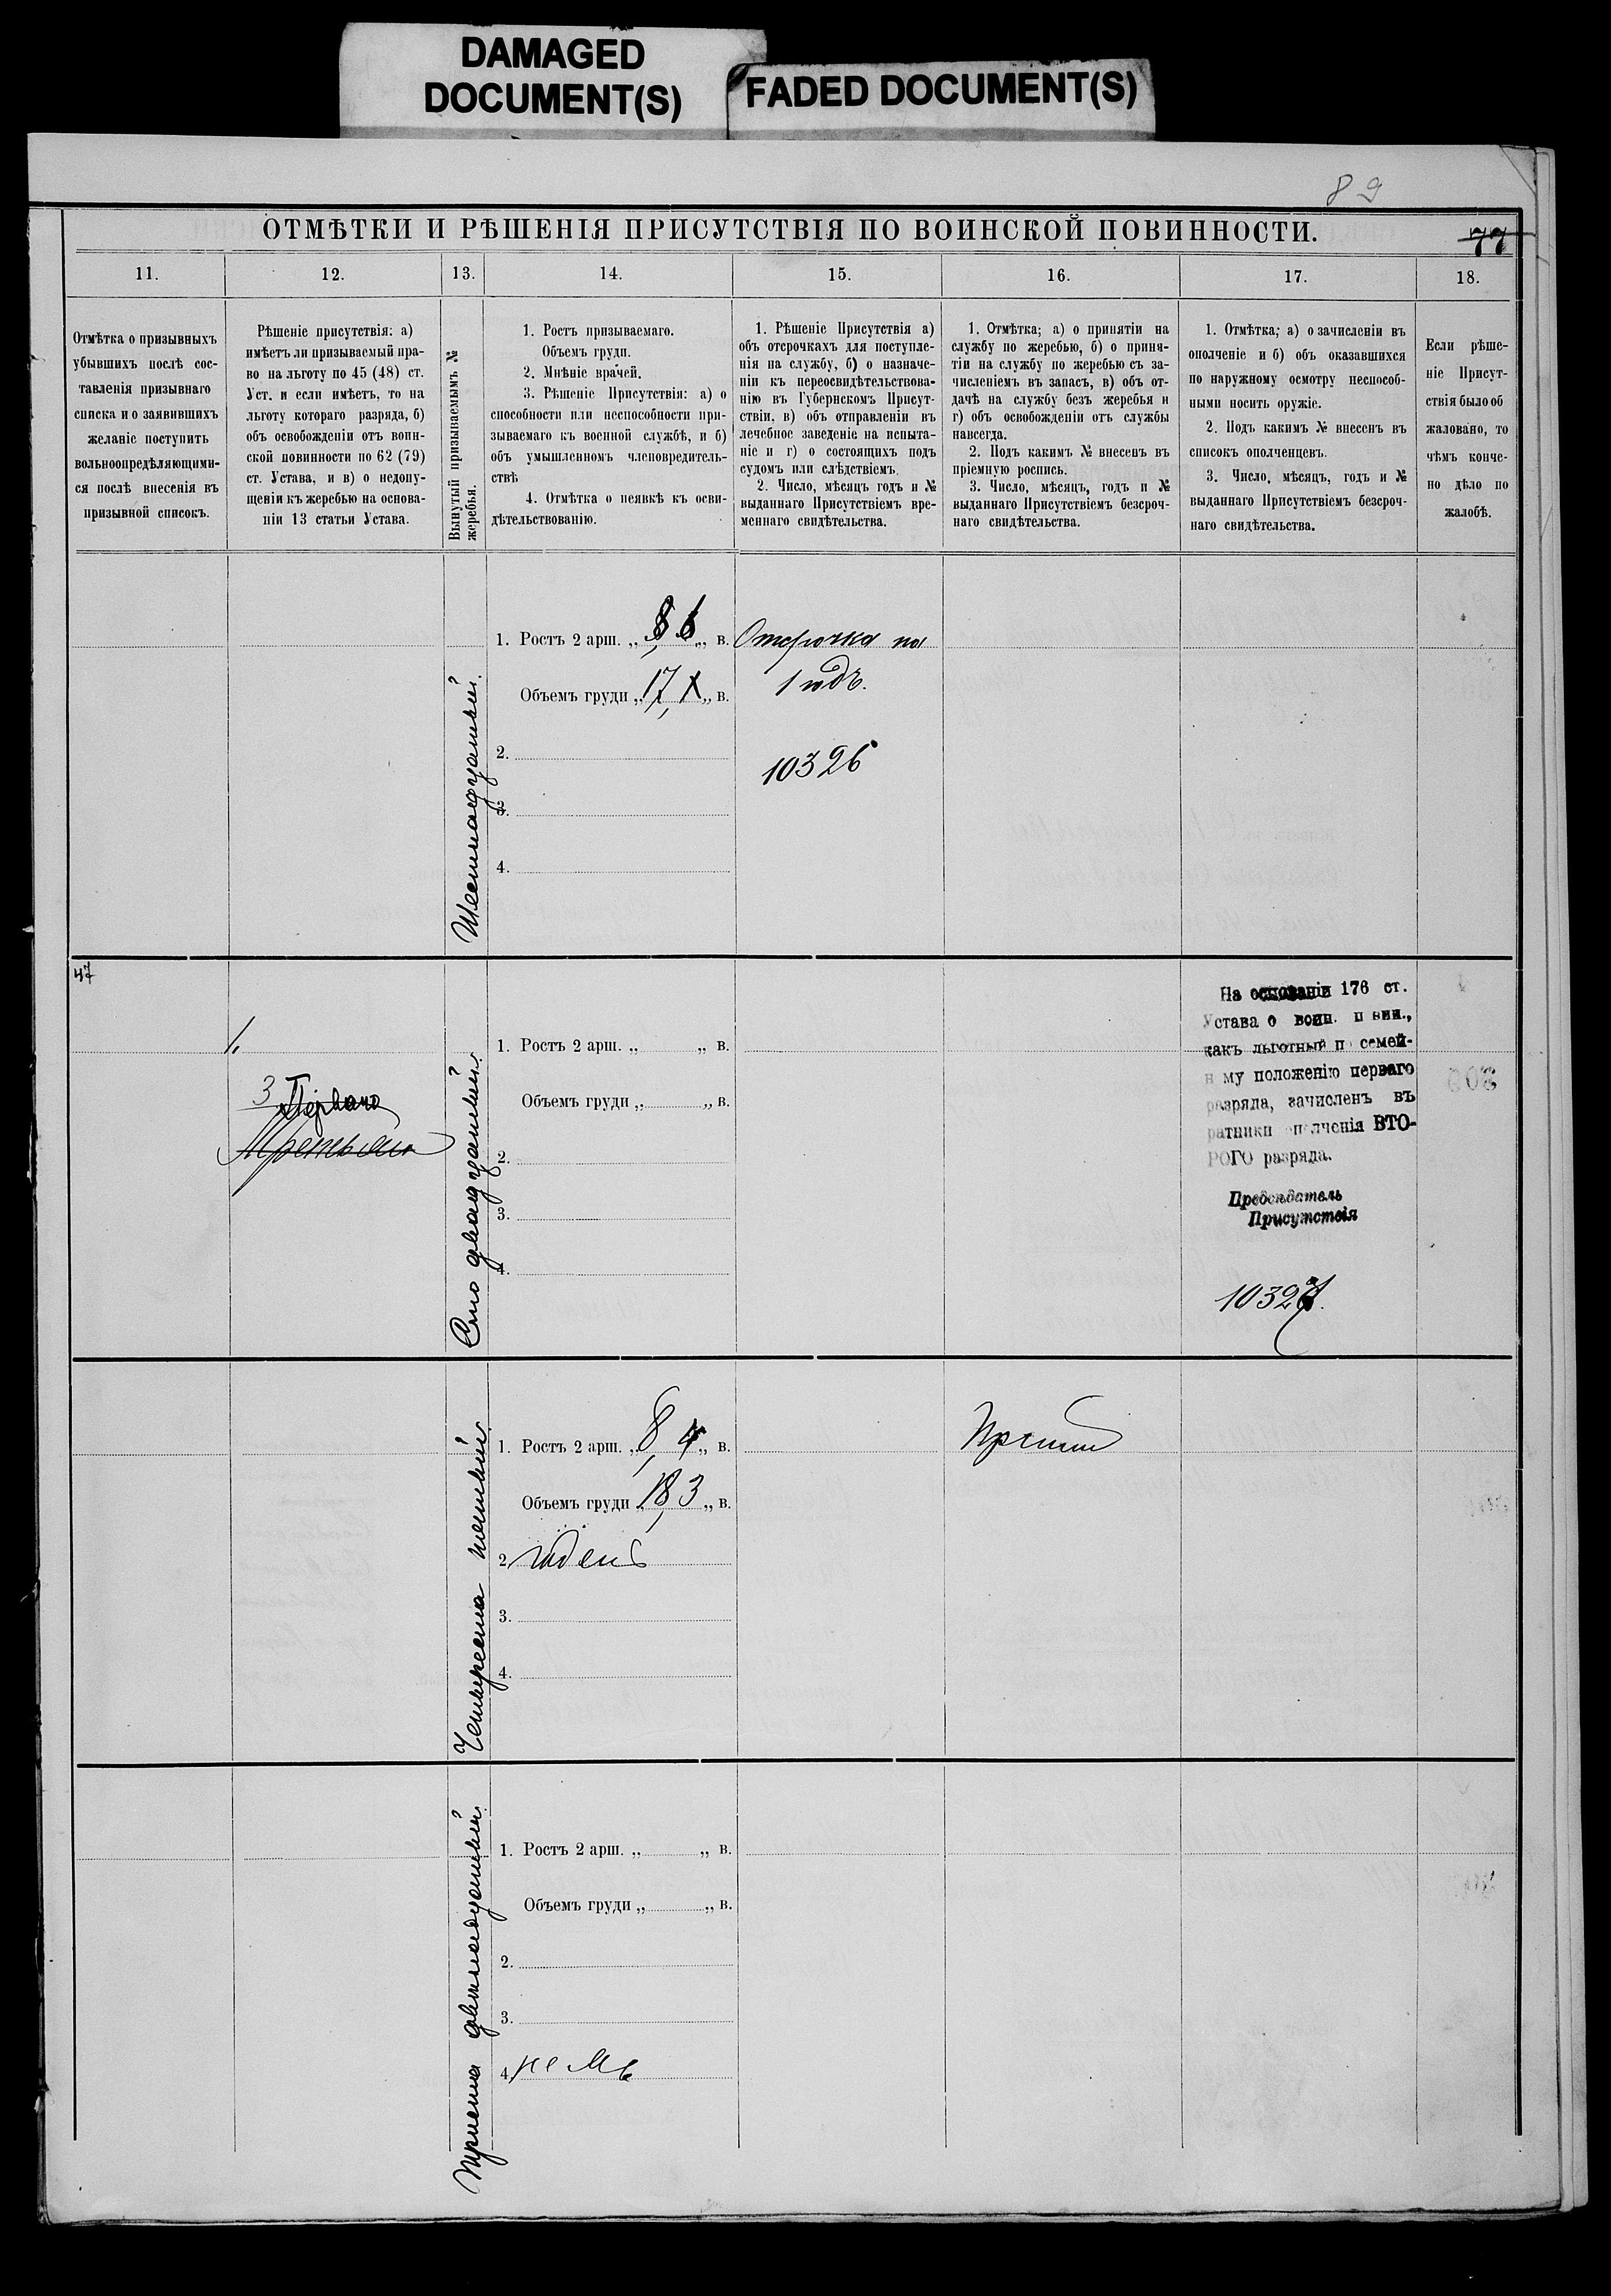 DAMAGED
DOCUMENT(S)
FADED DOCUMENT(S)
89
ОТМѢТКИ И РѢШЕНІЯ ПРИСУТСТВІЯ ПО ВОИНСКОЙ ПОВИННОСТИ.
77
11.
12.
13.
14.
15.
16.
17.
18.
Отмѣтка о призывныхъ
убывшихъ послѣ сос-
тавленія призывнаго
списка и о заявившихъ
желаніе поступить
вольноопредѣляющими-
ся послѣ внесенія въ
призывной списокъ.
Рѣшеніе присутствія: а)
имѣетъ ли призываемый пра-
во на льготу по 45 (48) ст.
Уст. и если имѣетъ, то на
льготу котораго разряда, б)
объ освобожденіи отъ воин-
ской повинности по 62 (79)
ст. Устава, и в) о недопу-
щеніи къ жеребью на основа-
ніи 13 статьи Устава.
Вынутый призываемымъ №
жеребья.
1. Ростъ призываемаго.
Объемъ груди.
2. Мнѣніе врачей.
3. Рѣшеніе Присутствія: а) о
способности или неспособности при-
зываемаго къ военной службѣ, и б)
объ умышленномъ членовредитель-
ствѣ
4. Отмѣтка о неявкѣ къ осви-
дѣтельствованію.
1. Рѣшеніе Присутствія а)
объ отсрочкахъ для поступле-
нія на службу, б) о назначе-
ніи къ переосвидѣтельствова-
нію въ Губернскомъ Присут-
ствіи, в) объ отправленіи въ
лечебное заведеніе на испыта-
ніе и г) о состоящихъ подъ
судомъ или слѣдствіемъ.
2. Число, мѣсяцъ годъ и №
выданнаго Присутствіемъ вре-
меннаго свидѣтельства.
1. Отмѣтка; а) о принятіи на
службу по жеребью, б) о приня-
тіи на службу по жеребью съ за-
численіемъ въ запасъ, в) объ от-
дачѣ на службу безъ жеребья и
г) объ освобожденіи отъ службы
навсегда.
2. Подъ какимъ № внесенъ въ
пріемную роспись.
3. Число, мѣсяцъ, годъ и №
выданнаго Присутствіемъ безсроч-
наго свидѣтельства.
1. Отмѣтка; а) о зачисленіи въ
ополченіе и б) объ оказавшихся
по наружному осмотру неспособ-
ными носить оружіе.
2. Подъ какимъ № внесенъ въ
списокъ ополченцевъ.
3. Число, мѣсяцъ, годъ и №
выданнаго Присутствіемъ безсроч-
наго свидѣтельства.
Если рѣше-
ніе Присут-
ствія было об
жаловано, то
чѣмъ конче-
но дѣло по
жалобѣ.
Шестнадцатый.
1. Ростъ 2 арш. „ 8, 6 „ в.
Объемъ груди „ 17, „ в.
2.
3.
4.
Отсрочка на
1 годъ.
10326
47
1.
3 Перваго
Третьяго
Сто двадцатый.
1. Ростъ 2 арш. „ „ в.
Объемъ груди „ „ в.
2.
3.
4.
На основаніи 176 ст.
Устава о воин. п вин.,
какъ льготный п семей-
н му положенію перваго
разряда, зачисленъ въ
ратники оп лченія ВТО-
РОГО разряда.
Предсѣдатель
Присутствія
10327.
Четыреста пятый.
1. Ростъ 2 арш. „ 8, 4 „ в.
Объемъ груди „ 18, 3 „ в.
2. годенъ
3.
4.
Принятъ
Триста двѣнадцатый.
1. Ростъ 2 арш. „ „ в.
Объемъ груди „ „ в.
2.
3.
4.